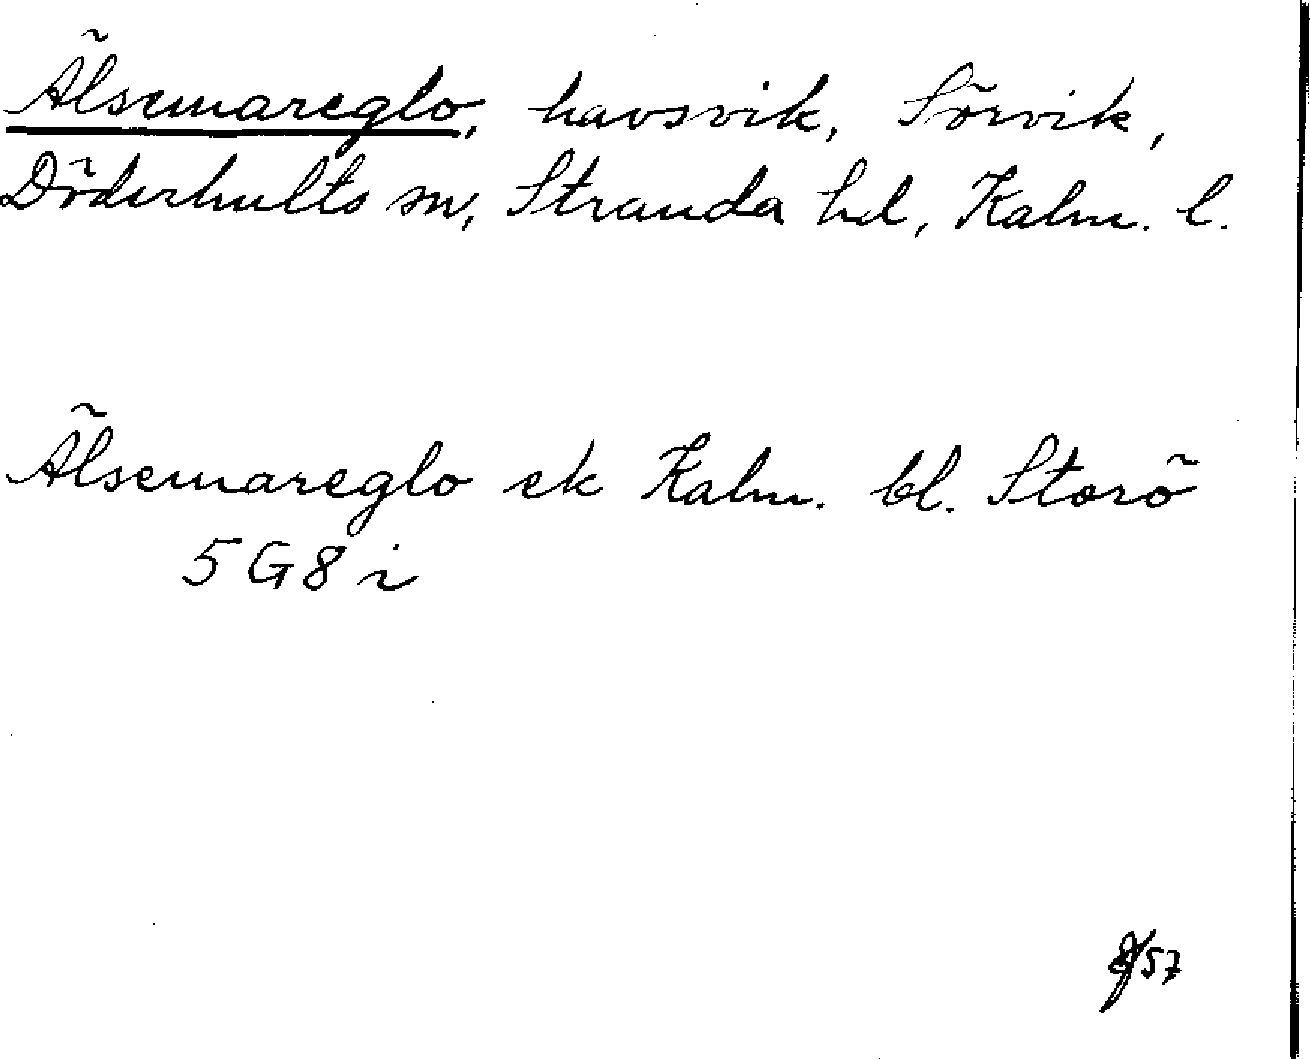 Älsemareglo, havsvik, Sörvik,
Döderhults sn, Stranda hd, Kalm. l.
Älsemareglo ek Kalm. bl. Storö
5 G 8 i
/57